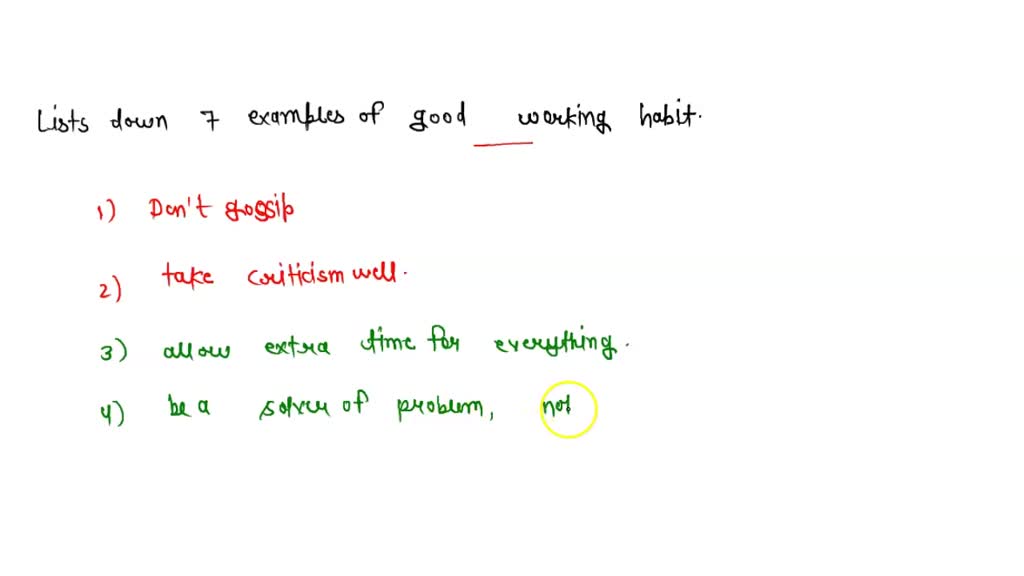 Lists down 7 examples of good working habit.
1) Don't gossip
2) take criticism well.
3) allow extra time for everything.
4) be a solver of problem, not